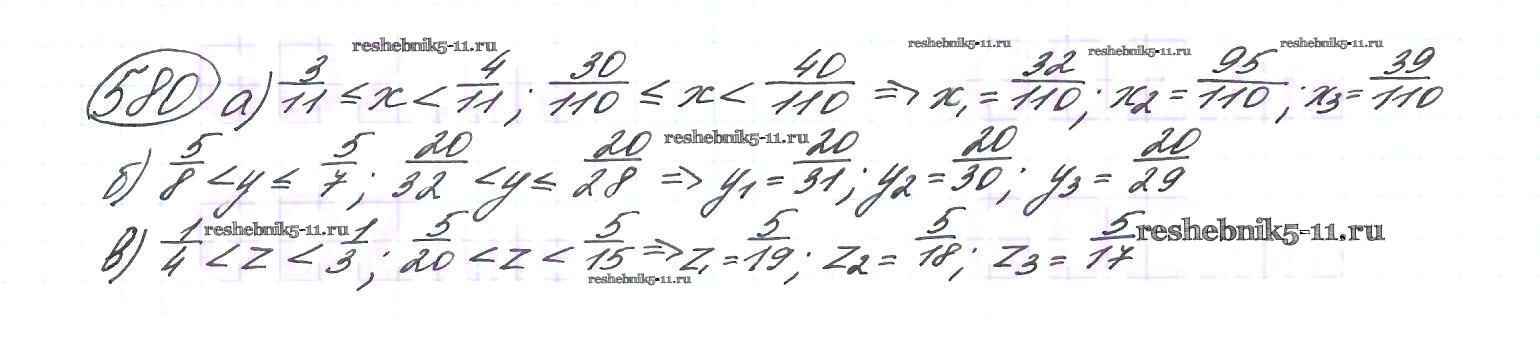 reshebnik5-11.ru reshebnik5-11.ru reshebnik5-11.ru reshebnik5-11.ru
580 а) 3/11 ≤ x < 4/11; 30/110 ≤ x < 40/110 => x₁ = 32/110; x₂ = 95/110; x₃ = 39/110
reshebnik5-11.ru
б) 5/8 < y ≤ 5/7; 20/32 < y ≤ 20/28 => y₁ = 20/31; y₂ = 20/30; y₃ = 20/29
reshebnik5-11.ru reshebnik5-11.ru
в) 1/4 < z < 1/3; 5/20 < z < 5/15 => z₁ = 5/19; z₂ = 5/18; z₃ = 5/17
reshebnik5-11.ru